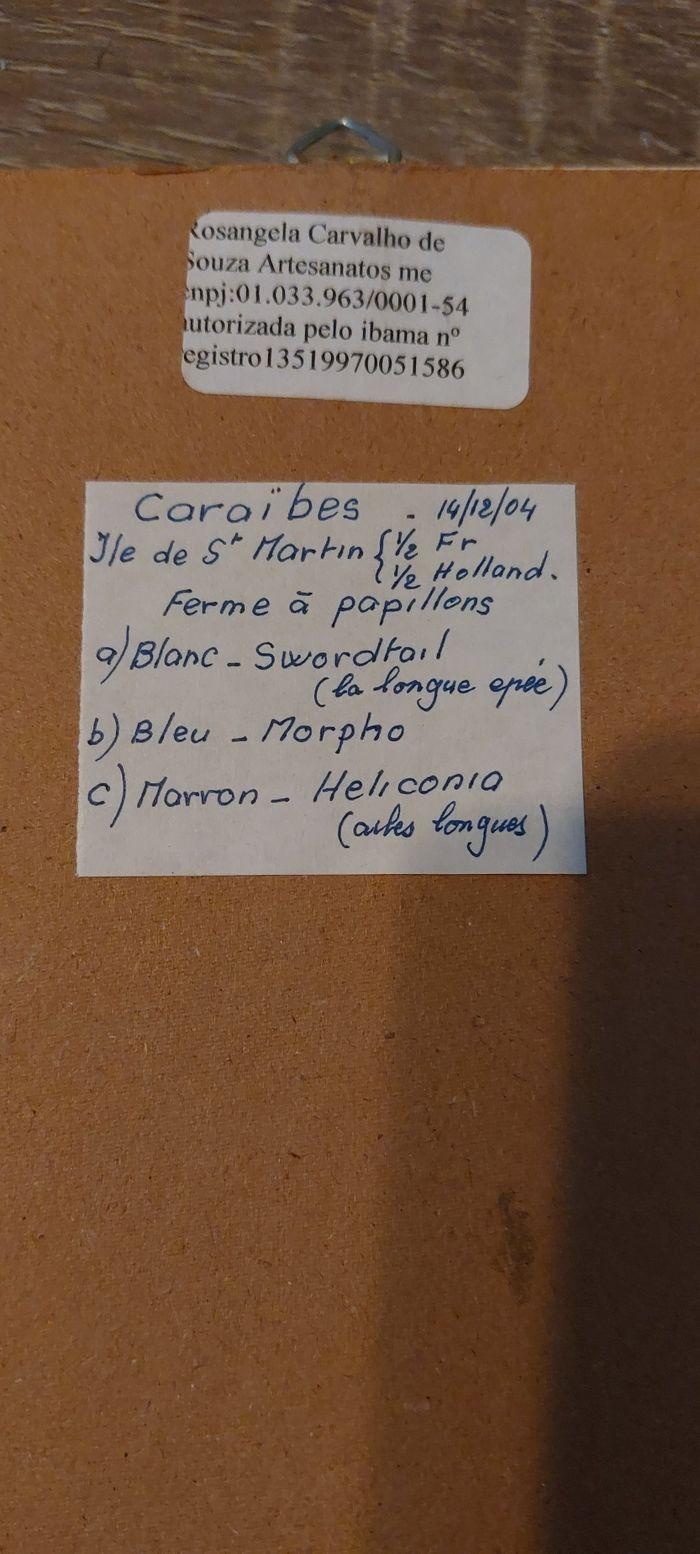 Rosangela Carvalho de
Souza Artesanatos me
cnpj:01.033.963/0001-54
autorizada pelo ibama nº
registro13519970051586
Caraïbes - 14/12/04
Ile de Sᵗ Martin { 1/2 Fr
1/2 Holland.
Ferme à papillons
a) Blanc - Swordtail
(la longue epée)
b) Bleu - Morpho
c) Marron - Heliconia
(ailes longues)